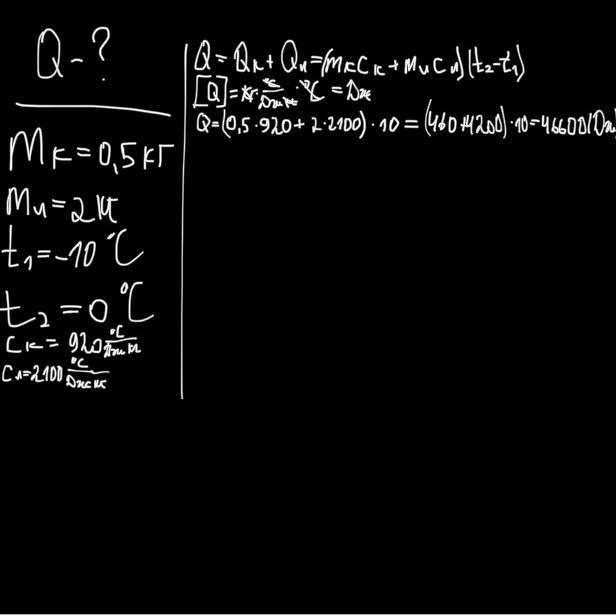 Q - ?
mк = 0,5 кг
mл = 2 кг
t₁ = -10 °C
t₂ = 0 °C
cк = 920 °C/Дж кг
cл = 2100 °C/Дж кг
Q = Qк + Qл = (mкcк + mлcл)(t₂ - t₁)
[Q] = кг · °C/Дж кг · °C = Дж
Q = (0,5 · 920 + 2 · 2100) · 10 = (460 + 4200) · 10 = 46600 (Дж